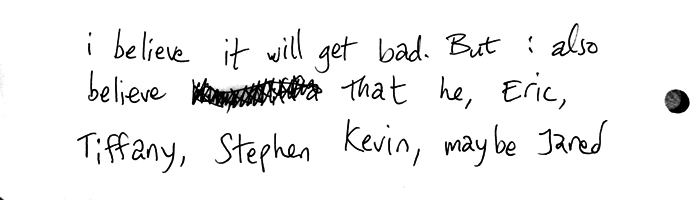 i believe it will get bad. But i also
believe that he, Eric,
Tiffany, Stephen Kevin, maybe Jared